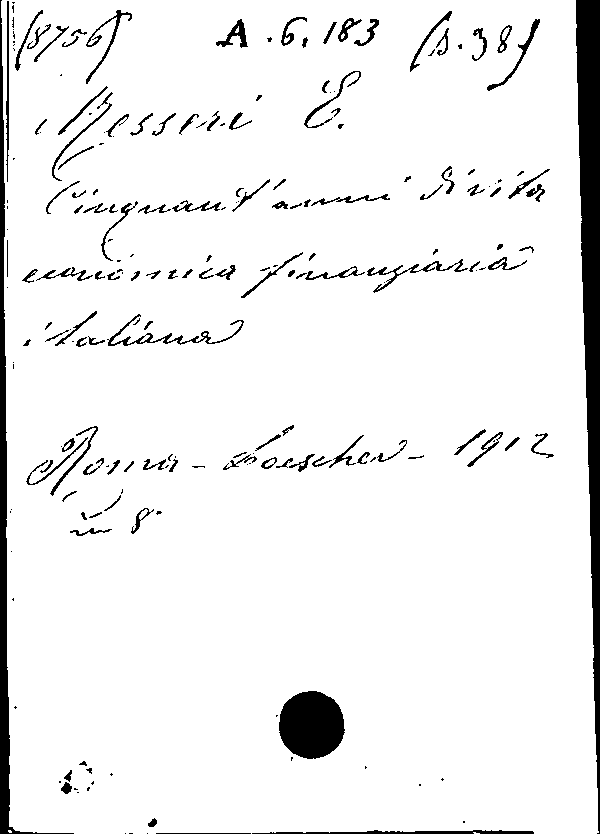 (8756) A.6.183 (s.38)
Messeri E.
Cinquant'anni di vita
economica finanziaria
italiana
Roma - Loescher - 1912
in 8°